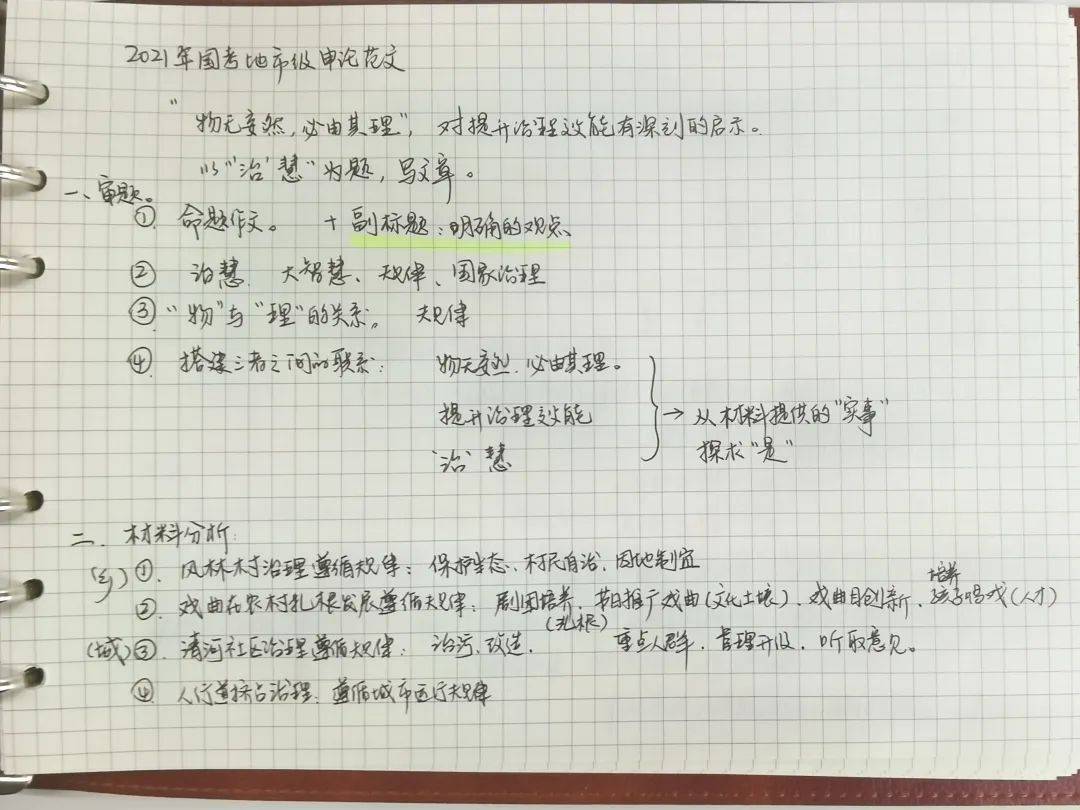 2021年国考地市级申论范文
"物无妄然,必由其理",对提升治理效能有深刻的启示。
以"'治'慧"为题,写文章。
一、审题。
① 命题作文。 + 副标题:明确的观点、
② 治慧 大智慧、规律、国家治理
③ "物"与"理"的关系。 规律
④ 搭建三者之间的联系: 物无妄然.必由其理。
提升治理效能
'治'慧
→ 从材料提供的"实事"
探求"是"
二. 材料分析:
(乡) ①. 风林村治理遵循规律:保护生态、村民自治、因地制宜
②. 戏曲在农村扎根发展遵循规律:剧团培养、节日推广戏曲(文化土壤)、戏曲自创新、培养孩子唱戏(人才)
(扎根)
(城) ③. 清河社区治理遵循规律: 治污、改造, 重点人群、管理开放、听取意见。
④. 人行道挤占治理:遵循城市运行规律